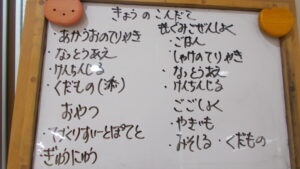 きょうのこんだて
・あかうおのてりやき
・なっとうあえ
・けんちんじる
・くだもの(
おやつ
・てづくりすいーとぽてと
・ぎゅうにゅう
・ごはん
・しゃけのてりやき
・なっとうあえ
・けんちんじる
ごごしょく
・やきいも
・みそしる・くだもの